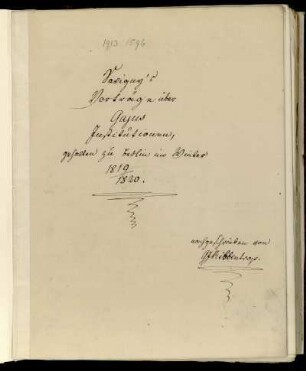 Savigny's
Vorträge über
Gajus
Institutionen,
gehalten zu Berlin im Winter
1819/1820.
nachgeschrieben von